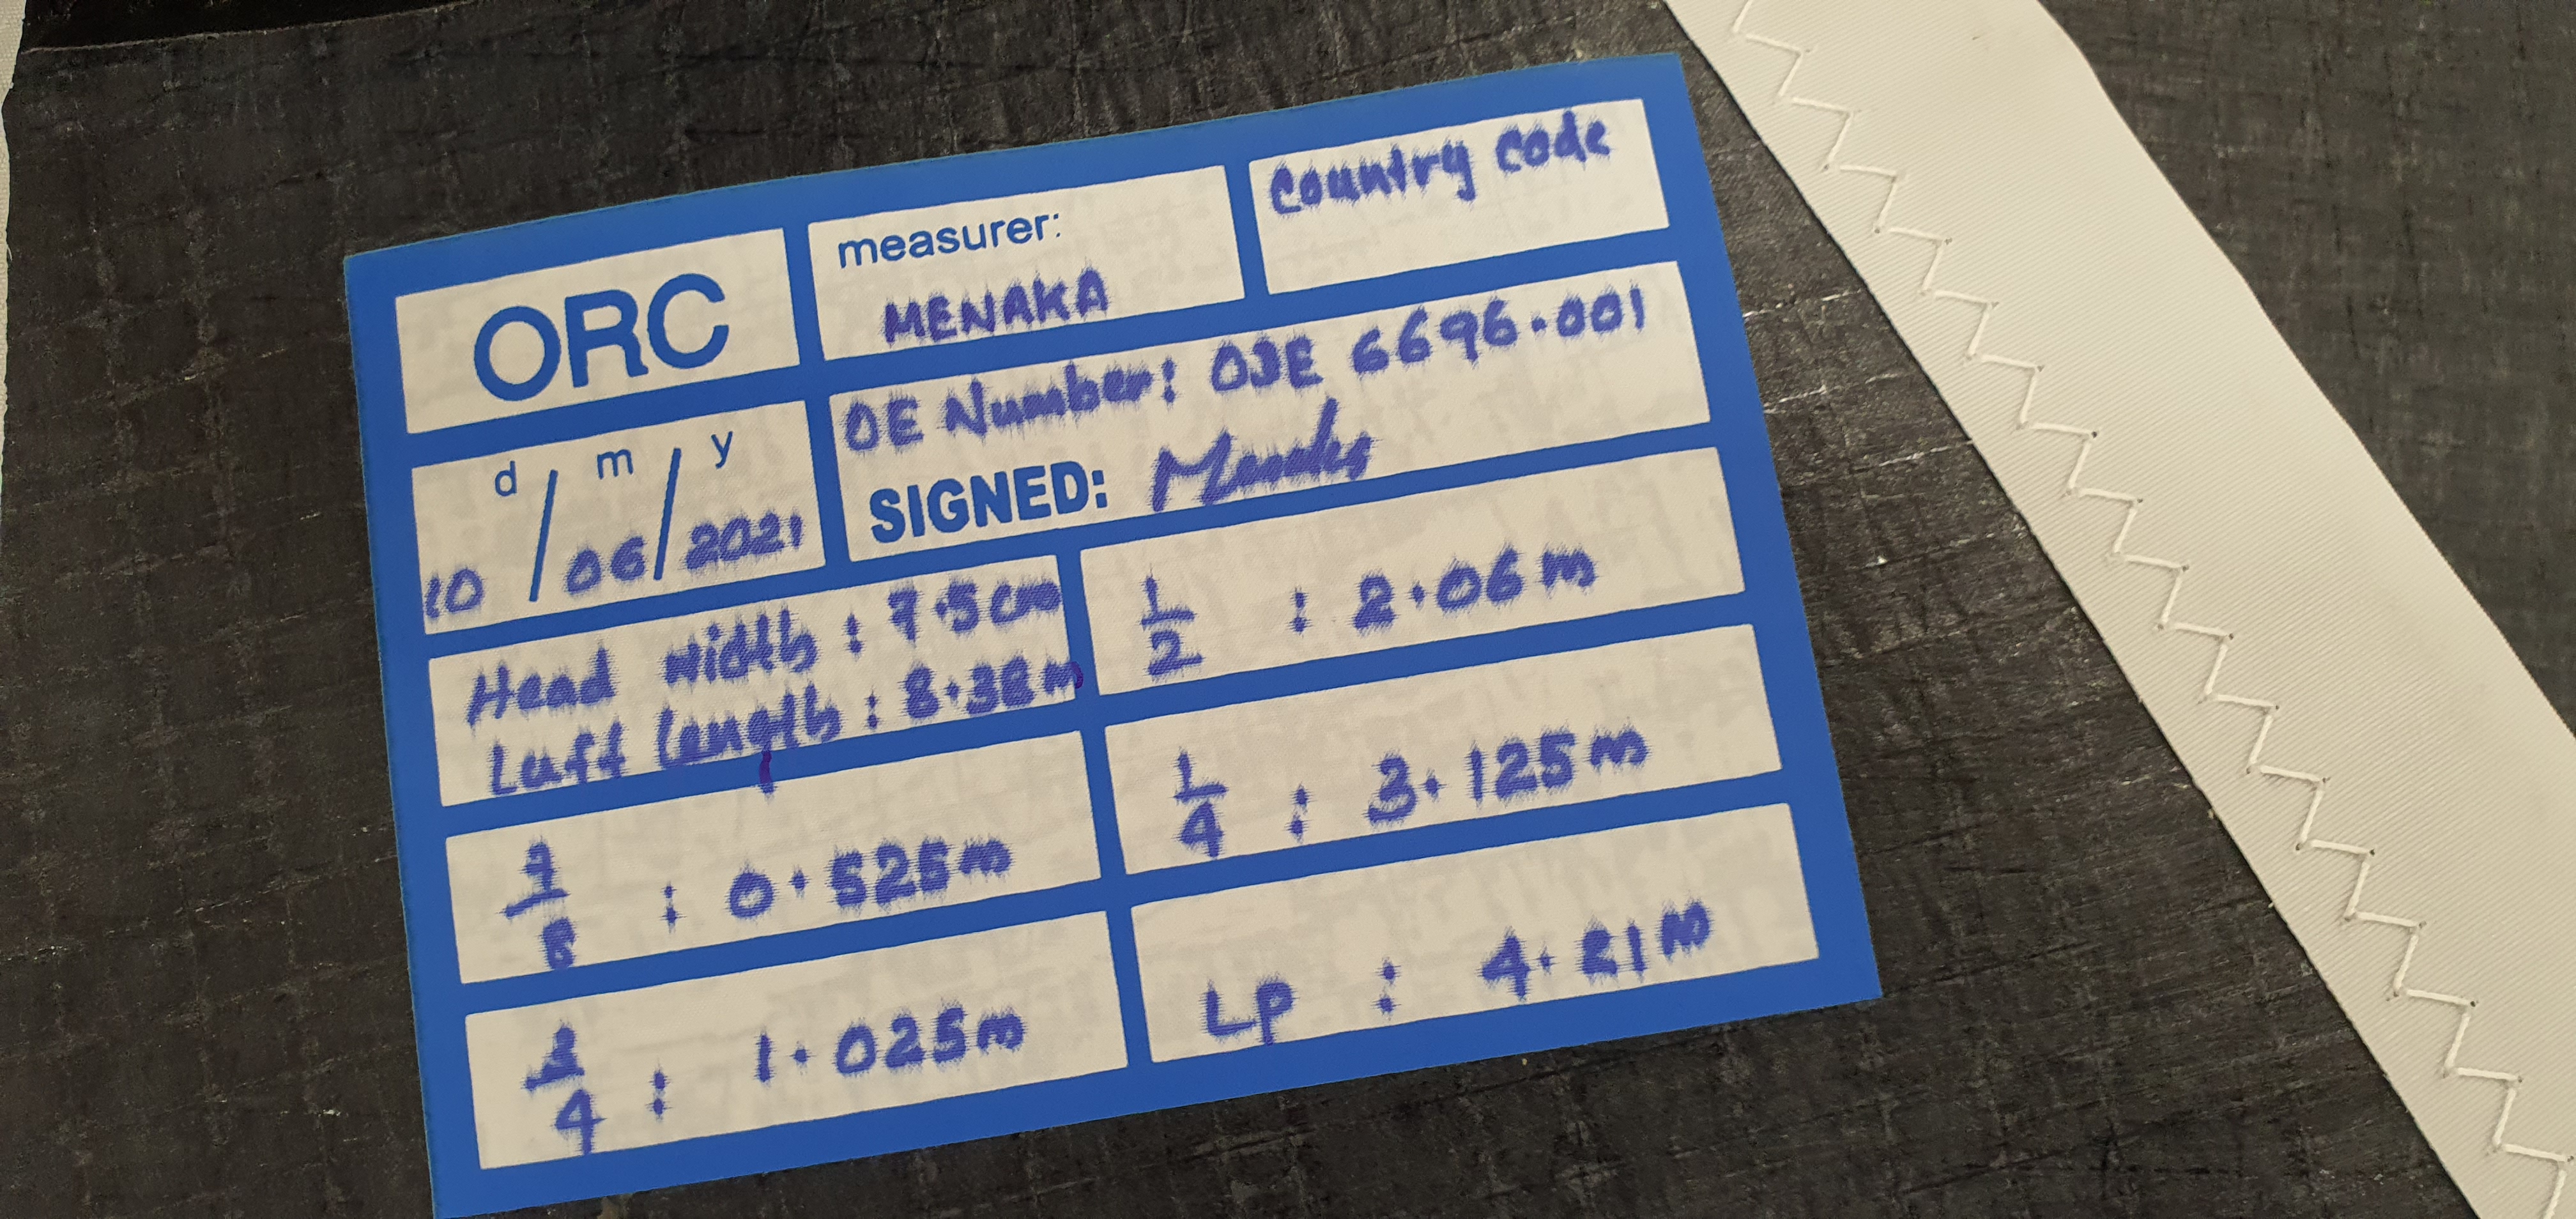 ORC
measurer:
MENAKA
Country code
d / m / y
10 / 06 / 2021
OE Number: OJE 6696.001
SIGNED:
Head width : 7.5cm
Luff length : 8.38m
1/2 : 2.06m
7/8 : 0.525m
1/4 : 3.125m
3/4 : 1.025m
LP : 4.21m